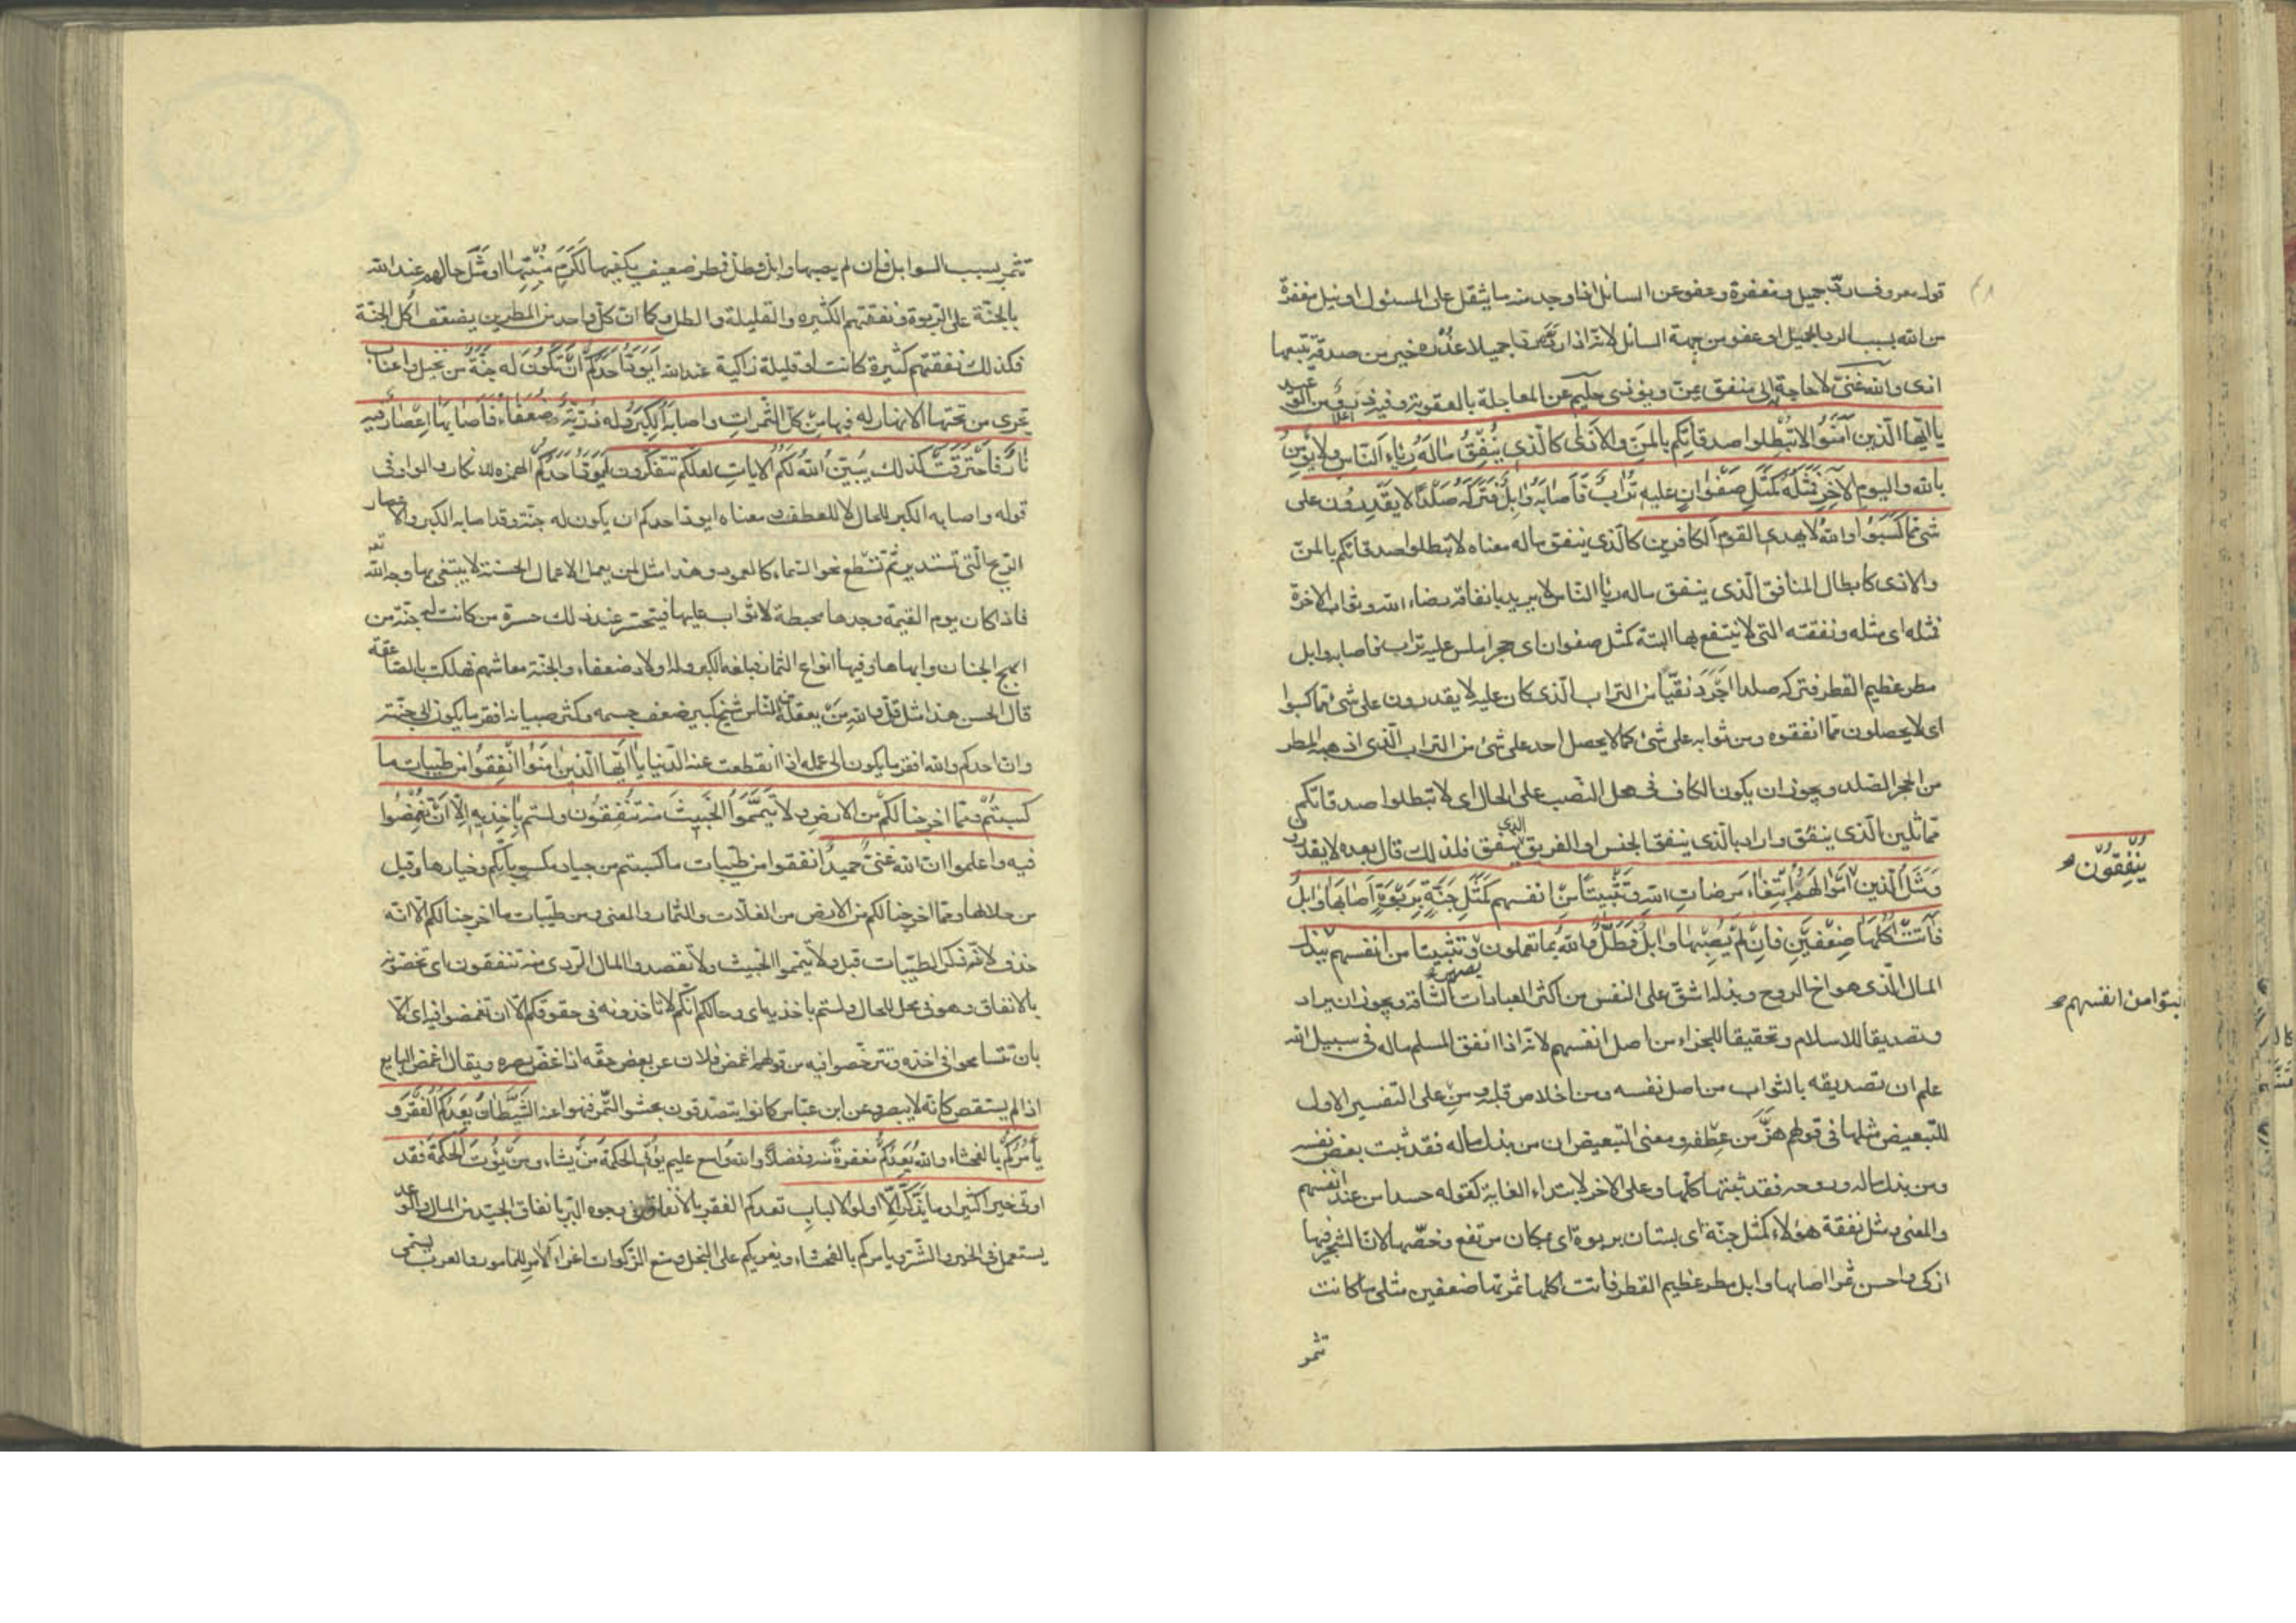 قول معروف رد جميل ومغفرة وعفو عن السائل اذا وجد منه ما يثقل على المسئول او نيل مغفرة
من الله بسبب الرد الجميل او عفو من جهة السائل لانه اذا رده ردا جميلا عذره خير من صدقة يتبعها
اذى والله غنى لا حاجة له الى منفق يمن ويؤذى حليم عن المعاجلة بالعقوبة وفيه نوع من الوعيد
يا ايّها الّذين آمَنُوا لا تُبْطِلوا صدقاتِكم بالمَنِّ والاَذٰى كالّذى يُنْفِقُ مالَهُ رِئاءَ النّاسِ ولا يؤمِنُ
بالله واليومِ الآخِرِ فمَثَلُهُ كمَثَلِ صَفْوانٍ عليه تُرابٌ فاَصابَهُ وابِلٌ فتَرَكَهُ صَلْدًا لا يَقْدِرُون على
شئ ممّا كَسَبُوا والله لا يهدى القومَ الكافرين كالّذى ينفق ماله معناه لا تبطلوا صدقاتكم بالمنّ
والاذى كابطال المنافق الّذى ينفق ماله رئا النّاس لا يريد بانفاقه رضاء الله وثواب الاخرة
فمثله اى مثله ونفقته التى لا ينتفع بها البتة كمثل صفوان اى حجر املس عليه تراب فاصابه وابل
مطر عظيم القطر فتركه صلدا اجرد نقيّا من التراب الّذى كان عليه لا يقدرون على شئ ممّا كسبوا
اى لا يحصلون ممّا انفقوه ومن ثوابه على شئ كما لا يحصل احد على شئ من التراب الّذى اذهبه المطر
من الحجر الصّلد ويجوز ان يكون الكاف فى محل النّصب على الحال اى لا تبطلوا صدقاتكم
مماثلين الّذى ينفق واراد بالّذى ينفق الجنس او الفريق الذى ينفق فلذلك قال بعده لا يقدرون
ومَثَلُ الّذين اموالَهُم ابتِغٰاءَ مرضاتِ الله وتَثْبيتًا مِن انفسهم كمَثَلِ جَنَّةٍ بِرَبْوَةٍ اَصابَها وابِلٌ
ينفقون
فآتَتْ اُكُلَها ضِعْفَيْنِ فاِنْ لم يُصِبْها وابِلٌ فطَلٌّ والله بما تعملون بصير وتثبيتا من انفسهم ببذل
المال الّذى هو اخ الروح وبذله اشقّ على النفس من اكثر العبادات الشاقة ويجوز ان يراد
ليثبتوا من انفسهم
وتصديقا للاسلام وتحقيقا للجزاء من اصل انفسهم لانه اذا انفق المسلم ماله فى سبيل الله
علم ان تصديقه بالثواب من اصل نفسه ومن اخلاص قلبه ومن على التفسير الاول
للتبعيض مثلها فى قولهم هزّ من عطفه ومعنى التبعيض ان من بذل ماله فقد ثبت بعض نفسه
ومن بذل ماله وروحه فقد ثبتها كلّها وعلى الاخر لابتداء الغاية كقوله حسدا من عند انفسهم
والمعنى مثل نفقة هؤلاء كمثل جنّة اى بستان بربوة اى بمكان مرتفع وخصّها لان الشجر فيها
ازكى واحسن ثمرا اصابها وابل مطر عظيم القطر فاتت اكلها ثمرتها ضعفين مثلى ما كانت
تثمر
تثمر بسبب الوابل فان لم يصبها وابل فطلّ فمطر ضعيف يكفيها لكَرَمِ مَنْبِتِها او مثّل حالهم عند الله
بالجنّة على الربوة ونفقتهم الكثيرة والقليلة بالطل وكما ان كلّ واحد من المطرين يضعف اكل الجنّة
فكذلك نفقتهم كثيرة كانت او قليلة زاكية عند الله اَيَوَدُّ اَحَدُكُمْ اَنْ تَكُونَ له جَنَّةٌ من نخيل واعناب
تجرى من تحتها الانهار له فيها مِن كلّ الثَّمراتِ واصابَهُ الكِبَرُ وله ذُرّيّةٌ ضُعَفاءُ فاَصابَها اِعْصارٌ فيه
نارٌ فاحْتَرَقَتْ كذلك يُبَيِّنُ اللهُ لكُمُ الاياتِ لعلّكم تتفكّرون اَيَوَدُّ اَحَدُكُم الهمزة للانكار والواو فى
قوله واصابه الكبر للحال لا للعطف ومعناه ايودّ احدكم ان يكون له جنّة وقد اصابه الكبر والاعصار
الرّيح الّتى تستدير ثمّ تسطع نحو السّماء كالعمود وهذا مثل لمن يعمل الاعمال الحسنة لا يبتغى بها وجه الله
فاذا كان يوم القيمة وجدها محبطة لا ثواب عليها فيتحسّر عند ذلك حسرة من كانت له جنّة من
ابهج الجنان وابهاها وفيها انواع الثمار فبلغه الكبر وله اولاد ضعفاء والجنّة معاشهم فهلكت بالصّاعقة
قال الحسن هذا مثل قلّ والله من يعقله من النّاس شيخ كبير ضعف جسمه وكثر صبيانه افقر ما يكون الى جنّته
وانّ احدكم والله افقر ما يكون الى عمله اذا انقطعت عنه الدّنيا يا اَيّها الّذين اٰمَنُوا اَنْفِقُوا من طيّبات ما
كسبتُمْ وممّا اخرجنا لكُم من الارضِ ولا تَيَمَّمُوا الخَبيثَ منه تُنْفِقُون ولستم بآخِذيهِ اِلّا اَنْ تُغْمِضُوا
فيه واعلموا انّ الله غنىٌّ حميدٌ انفقوا من طيّبات ما كسبتم من جياد مكسوباتكم وخيارها وقيل
من حلالها وممّا اخرجنا لكم من الارض من الغلّات والثمار والمعنى ومن طيّبات ما اخرجنا لكم الّا انّه
حذف لانّه ذكر الطيّبات قبل ولا تيمّموا الخبيث ولا تقصدوا المال الردى منه تنفقون اى تخصّونه
بالانفاق وهو فى محل الحال ولستم باخذيه اى وحالكم انّكم لا تاخذونه فى حقوقكم الّا ان تغمضوا فيه اى الّا
بان تتسامحوا فى اخذه وتترخّصوا فيه من قولهم اغمض فلان عن بعض حقّه اذا غضّ بصره ويقال اغمض البايع
اذا لم يستقص كانّه لا يبصر وعن ابن عبّاس كانوا يتصدّقون بحشو التّمر فنهوا عنه الشّيطانُ يَعِدُكُمُ الفَقْرَ و
يأمُرُكُم بالفحشاء والله يَعِدُكُم مغفرةً منه وفضلًا والله واسع عليم يُؤْتِى الحكمةَ مَنْ يشاء ومَنْ يُؤْتَ الحكمةَ فقد
اوتى خيرا كثيرا وما يَذَّكَّرُ اِلّا اولوا الالباب يعدكم الفقر بالانفاق فى وجوه البرّ بانفاق الجيّد من المال والوعد
يستعمل فى الخير والشّرّ ويامركم بالفحشاء ويغريكم على البخل ومنع الزّكوات اغراء الآمر للمامور والعرب يسمّى